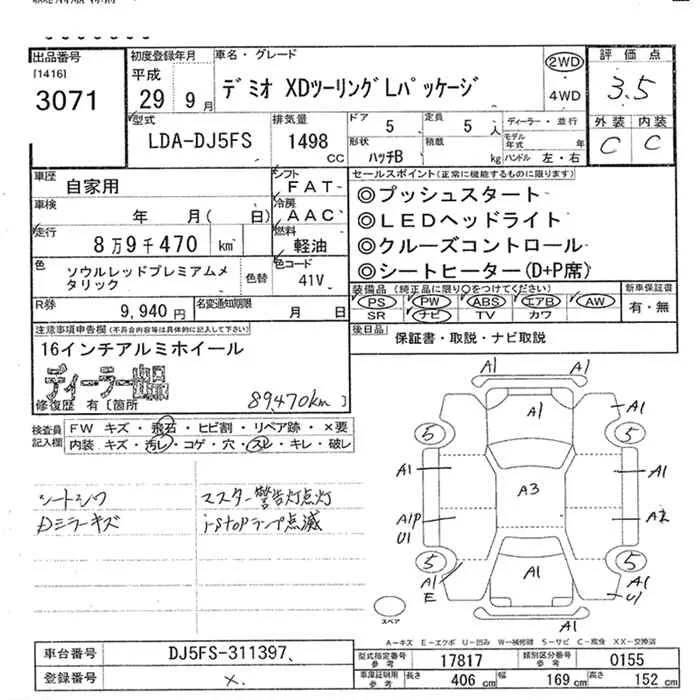 出品番号
[1416]
3071
初度登録年月
平成
29 9月
車名・グレード
デミオ XDツーリングLパッケージ
2WD
4WD
評価点
3.5
外装 内装
C C
型式
LDA-DJ5FS
排気量
1498
CC
ドア 5
定員 5 人
形状
ハッチB
積載 kg
ディーラー・並行
モデル年式 年
ハンドル 左・右
車歴
自家用
シフト
FAT
車検
年 月( 日)
冷房
AAC
走行
8万9千470 km
燃料
軽油
色
ソウルレッドプレミアムメタリック
色替
色コード
41V
R券 9,940円
名変通知期限 月 日
セールスポイント(正常に機能するものに限ります)
◎プッシュスタート
◎LEDヘッドライト
◎クルーズコントロール
◎シートヒーター(D+P席)
装備品 (純正品に限り○をつけてください)
PS PW ABS エアB AW
SR ナビ TV カワ
新車保証書
有・無
後日品
保証書・取説・ナビ取説
注意事項申告欄(不具合内容等は具体的に記入して下さい)
16インチアルミホイール
ディーラー出品
修復歴 有 [箇所
89,470km ]
検査員記入欄
FW キズ・飛石・ヒビ割・リペア跡・×要
内装 キズ・汚レ・コゲ・穴・スレ・キレ・破レ
シートシワ
Dミラーキズ
マスター警告灯点灯
i-stopランプ点滅
A1 A1
A1 A1
5 5
A1 A1
A3
A1P A2
U1
5 5
A1 A1 A1
E U1
A1
スペア
A-キズ E-エクボ U-凹み W-補修跡 S-サビ C-腐食 XX-交換済
車台番号
DJ5FS-311397
登録番号
×.
型式指定番号 参考 17817
類別区分番号 参考 0155
車庫証明用 参考
長さ 406 cm
幅 169 cm
高さ 152 cm